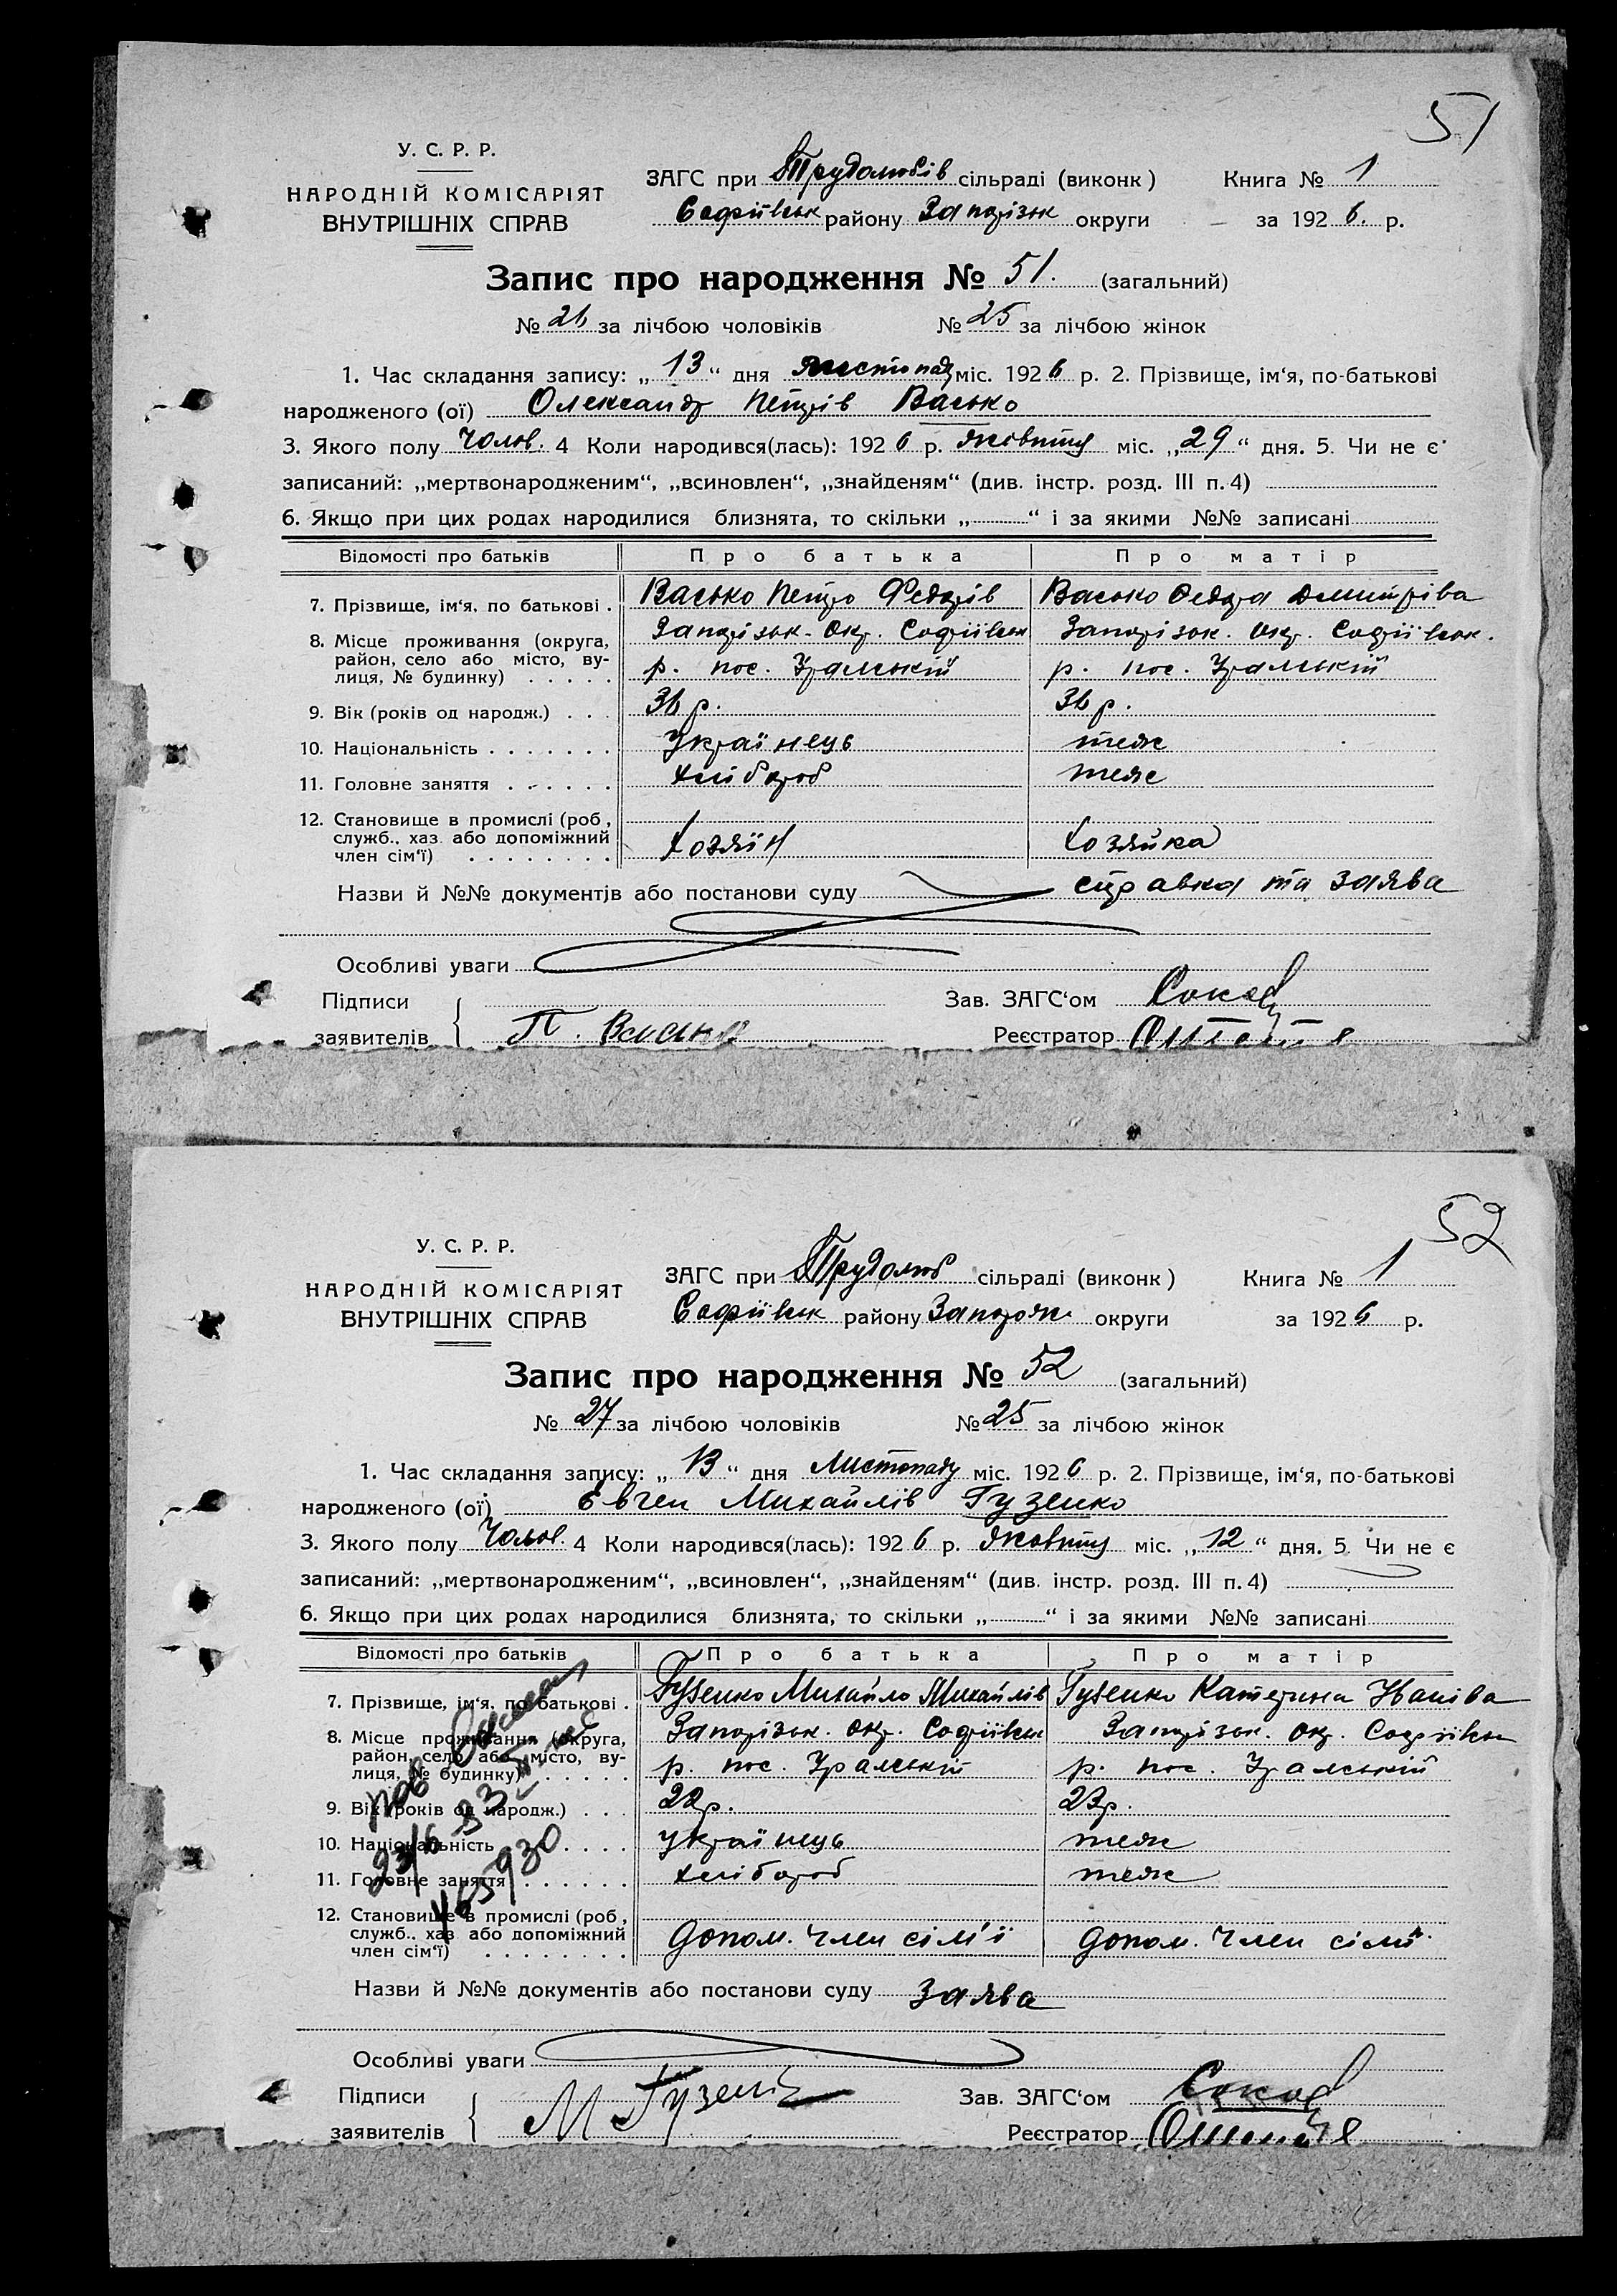 51
У. С. Р. Р.
НАРОДНІЙ КОМІСАРІЯТ
ВНУТРІШНІХ СПРАВ
ЗАГС при Трудолюбів сільраді (виконк)
Софіївськ району Запорізьк округи
Книга № 1
за 1926. р.
Запис про народження № 51. (загальний)
№ 26 за лічбою чоловіків № 25 за лічбою жінок
1. Час складання запису: „13“ дня листопаду міс. 1926 р. 2. Прізвище, ім‘я, по-батькові
народженого (ої) Олександр Петрів Васько
3. Якого полу Чолов. 4 Коли народився(лась): 1926 р. жовтня міс. „29“ дня. 5. Чи не є
записаний: „мертвонародженим“, „всиновлен“, „знайденям“ (див. інстр. розд. III п. 4)
6. Якщо при цих родах народилися близнята, то скільки „ “ і за якими №№ записані
Відомості про батьків Про батька Про матір
7. Прізвище, ім‘я, по батькові . Васько Петро Федорів Васько Федора Дмитріва
8. Місце проживання (округа, Запорізьк. Окр. Софіївськ Запорізьк. Окр. Софіївськ.
район, село або місто, ву-
лиця, № будинку) р. пос. Уральській р. пос. Уральській
9. Вік (років од народж.) 36 р. 36 р.
10. Національність українець теж
11. Головне заняття хлібороб теж
12. Становище в промислі (роб,
служб., хаз. або допоміжний
член сім‘ї) Хозяїн Хозяйка
Назви й №№ документів або постанови суду справка та заява
Особливі уваги
Підписи
заявителів П. Васько
Зав. ЗАГС‘ом
Реєстратор
52
У. С. Р. Р.
НАРОДНІЙ КОМІСАРІЯТ
ВНУТРІШНІХ СПРАВ
ЗАГС при Трудолюб сільраді (виконк)
Софіївськ району Запорож округи
Книга № 1
за 1926 р.
Запис про народження № 52 (загальний)
№ 27 за лічбою чоловіків № 25 за лічбою жінок
1. Час складання запису: „13“ дня Листопаду міс. 1926 р. 2. Прізвище, ім‘я, по-батькові
народженого (ої) Євген Михайлів Гузенко
3. Якого полу Чолов. 4 Коли народився(лась): 1926 р. жовтня міс. „12“ дня. 5. Чи не є
записаний: „мертвонародженим“, „всиновлен“, „знайденям“ (див. інстр. розд. III п. 4)
6. Якщо при цих родах народилися близнята, то скільки „ “ і за якими №№ записані
Відомості про батьків Про батька Про матір
7. Прізвище, ім‘я, по батькові . Гузенко Михайло Михайлів Гузенко Катерина Іваніва
8. Місце проживання (округа, Запорізьк. Окр. Софіївськ Запорізьк. Окр. Софіївськ
район, село або місто, ву-
лиця, № будинку) р. пос. Уральській р. пос. Уральській
9. Вік (років од народж.) 22 р. 23 р.
10. Національність українець теж
11. Головне заняття хлібороб теж
12. Становище в промислі (роб,
служб., хаз. або допоміжний
член сім‘ї) допом. член сім‘ї допом. член сім‘ї
Назви й №№ документів або постанови суду заява
Особливі уваги
Підписи
заявителів М Гузенко
Зав. ЗАГС‘ом
Реєстратор